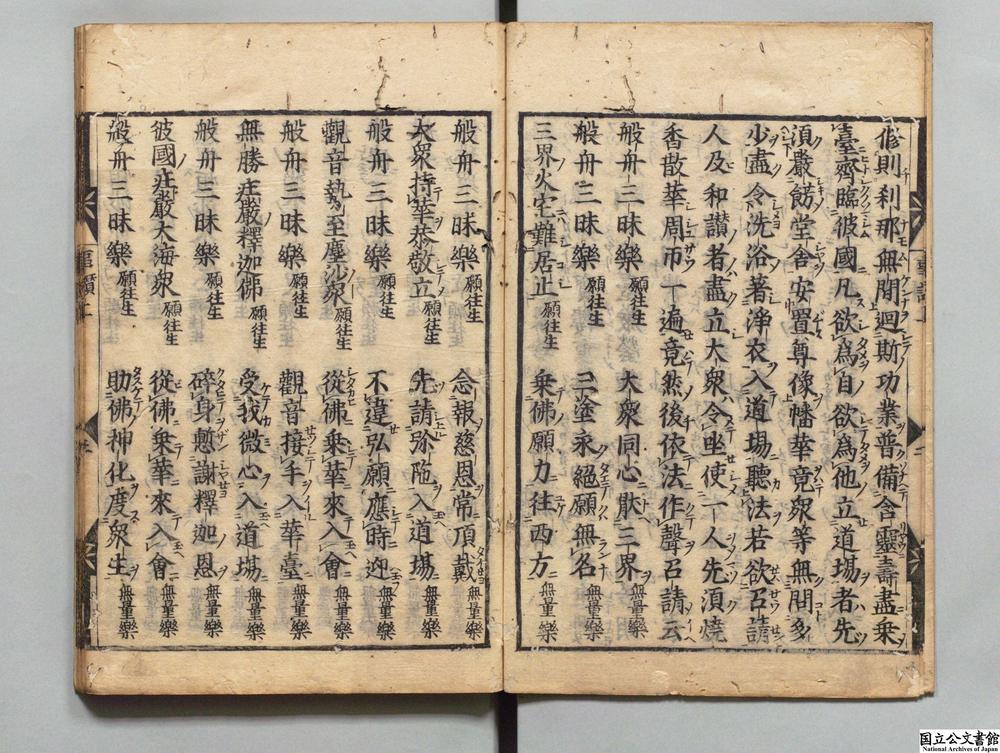 修則刹那無間廻斯功業普備含靈壽盡乗
臺齊臨彼國凡欲為自欲為他立道場者先
湏嚴餝堂舎安置尊像幡華竟衆等無問多
少盡令洗浴著淨衣入道場聽法若欲召請
人及和讃者盡立大衆令坐使一人先湏燒
香散華周帀一遍竟然後依法作聲召請云
般舟三昧樂 願往生 大衆同心猒三界 無量樂
般舟三昧樂 願往生 三塗永絕願無名 無量樂
三界火宅難居止 願往生 乗佛願力往西方 無量樂
般舟三昧樂 願往生 念報慈恩常頂戴 無量樂
大衆持華恭敬立 願往生 先請弥陁入道場 無量樂
般舟三昧樂 願往生 不違弘願應時迎 無量樂
觀音勢至塵沙衆 願往生 從佛乗華來入會 無量樂
般舟三昧樂 願往生 觀音接手入華臺 無量樂
無勝庄嚴釋迦佛 願往生 受我微心入道場 無量樂
般舟三昧樂 願往生 碎身慙謝釋迦恩 無量樂
彼國庄嚴大海衆 願往生 從佛乗華來入會 無量樂
般舟三昧樂 願往生 助佛神化度衆生 無量樂
国立公文書館
National Archives of Japan